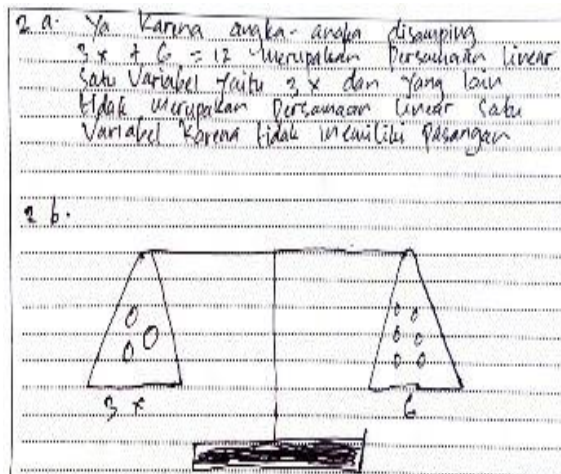 2 a. Ya Karena angka-angka disamping
3x + 6 = 12 merupakan persamaan linear
satu Variabel yaitu 3x dan yang lain
tidak merupakan persamaan linear satu
Variabel Karena tidak memiliki pasangan
2 b.
3x
6